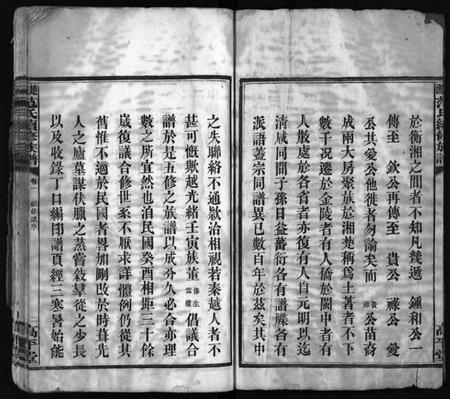 范氏續修族譜
高平堂
於衡湘之間者不知凡幾遞 鍾和公一
傳至 欽公再傳至 貴公 祿公 愛
公其愛公他徙者勿論矣而 貴祿 公苗裔
成兩大房聚族於湘楚稱為土著者不下
數千況遷於金陵者有人僑於閩中者有
人散處於各省者亦復有人自元明以迄
清咸同間子孫日益蕃衍各有譜牒各有
派語蓋宗同譜異已數百年於茲矣其中
之失聯絡不通款洽相視若秦越人者不
甚可慨歟越光緒壬寅族董 生雲 倡議合
譜於是五修之族譜以成分久必合亦理
數之所宜然也洎民國癸酉相距三十餘
歲復議合修世系不厭求詳體例仍從其
舊惟不適於民國者畧加刪改於時葺先
人之廬墓謀伏臘之蒸嘗從之少長
以及收錄丁口編印譜頁經三寒暑始能
范氏續修族譜 卷一 二 高平堂